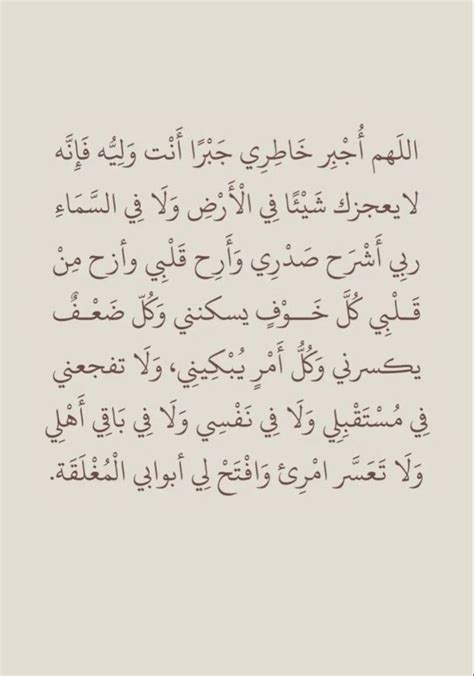 اللَهم أُجْبِر خَاطِرِي جَبْرًا أَنْت وَلِيُّه فَإِنَّه
لا يعجزك شَيْئًا فِي الْأَرْضِ وَلَا فِي السَّمَاءِ
ربِي أَشْرَح صَدْرِي وَأَرِح قَلْبِي وأزح مِنْ
قَـلْبِي كُلَّ خَــوْفٍ يسكنني وَكُلّ ضَعْـفٌ
يكسرني وَكُلُّ أَمْرٍ يُبْكِينِي، وَلَا تفجعني
فِي مُسْتَقْبِلِي وَلَا فِي نَفْسِي وَلَا فِي بَاقِي أَهْلِي
وَلَا تَعَسَّر امْرِئ وَافْتَحْ لِي أبوابي الْمُغْلَقَة.